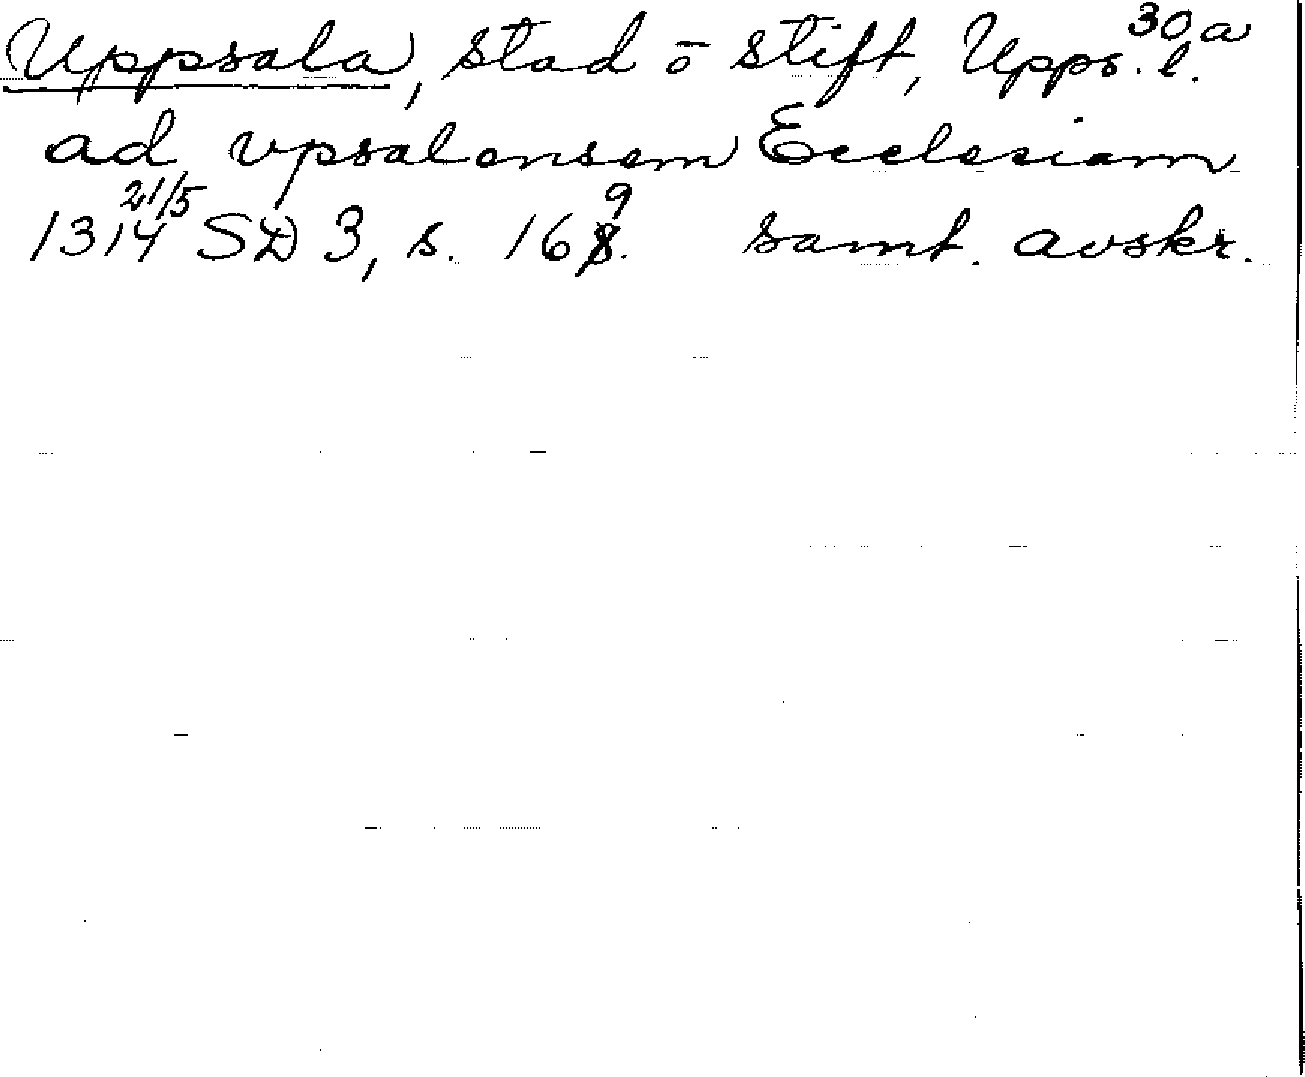 Uppsala, stad o stift, Upps. l. 30a
ad vpsalensem Ecclesiam
1314 21/5 SD 3, s. 169. samt. avskr.